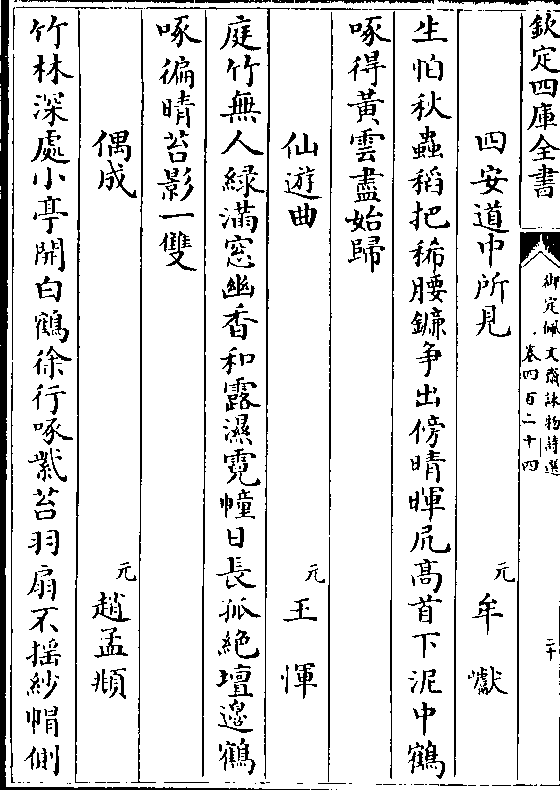 欽定四庫全書
御定佩文齋詠物詩選
卷四百二十四
二十
四安道中所見
元 牟巘
生怕秋蟲稻把稀腰鐮爭出傍晴暉尻高首下泥中鶴
啄得黃雲盡始歸
仙遊曲
元 王惲
庭竹無人緑滿窓幽香和露濕霓幢日長孤絶壇邊鶴
啄徧晴苔影一雙
偶成
元 趙孟頫
竹林深處小亭開白鶴徐行啄紫苔羽扇不揺紗帽側